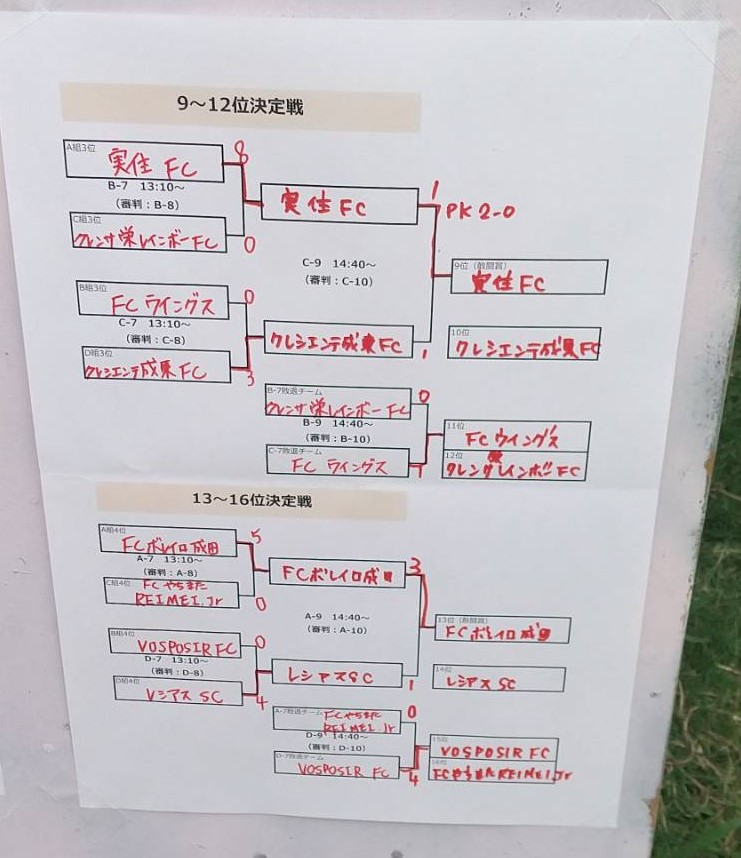 9～12位決定戦
A組3位
実住 FC
8
B-7 13:10～
(審判：B-8)
C組3位
クレンサ栄レインボーFC
0
実住FC
1
PK 2-0
C-9 14:40～
(審判：C-10)
B組3位
FC ウイングス
0
C-7 13:10～
(審判：C-8)
D組3位
クレシエンテ成東FC
3
クレシエンテ成東FC
1
9位（敢闘賞）
実住FC
10位
クレシエンテ成東FC
B-7敗退チーム
クレンサ栄レインボーFC
0
B-9 14:40～
(審判：B-10)
C-7敗退チーム
FC ウイングス
11位
FCウイングス
12位
クレンサ栄レインボーFC
13～16位決定戦
A組4位
FCボレイロ成田
5
A-7 13:10～
(審判：A-8)
C組4位
FCやちまた
REIMEI.Jr
0
FCボレイロ成田
3
A-9 14:40～
(審判：A-10)
B組4位
VOSPOSIR FC
0
D-7 13:10～
(審判：D-8)
D組4位
レシアス SC
4
レシアスSC
1
13位（敢闘賞）
FCボレイロ成田
14位
レシアス SC
A-7敗退チーム
FCやちまた
REIMEI.Jr
0
D-9 14:40～
(審判：D-10)
D-7敗退チーム
VOSPOSIR FC
4
15位
VOSPOSIR FC
16位
FCやちまたREIMEI.Jr